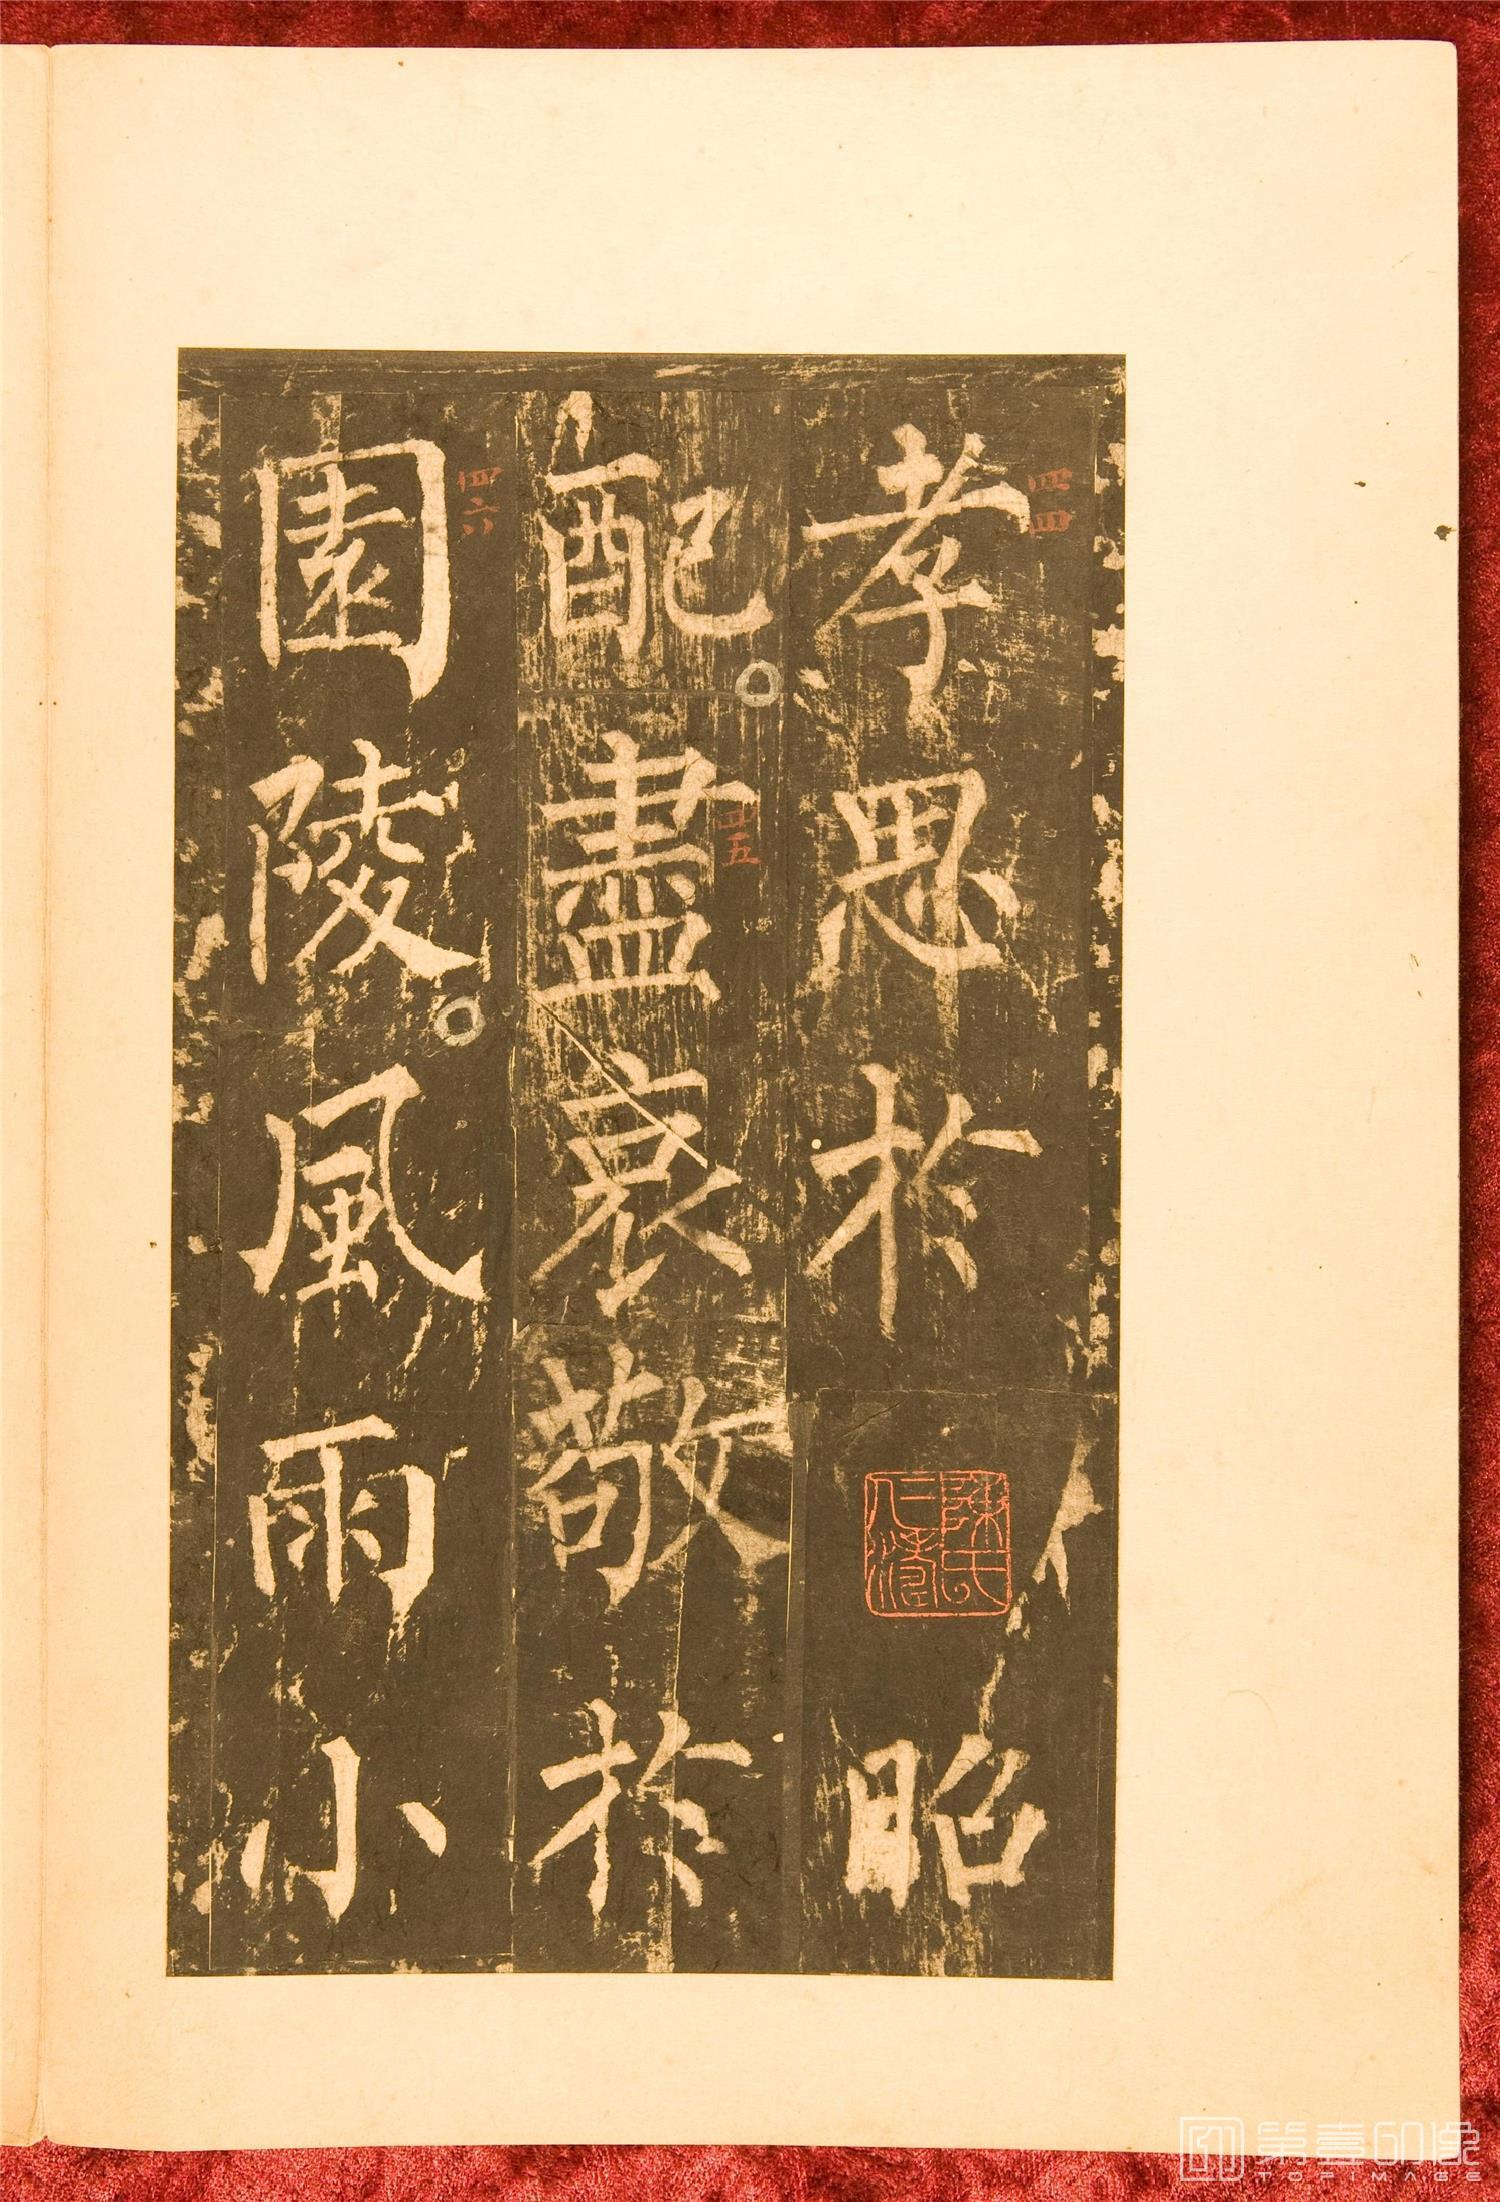 孝思於昭
配盡哀敬於
園陵風雨小
四四
四五
四六
陳氏
第壹印像
TOPIMAGE